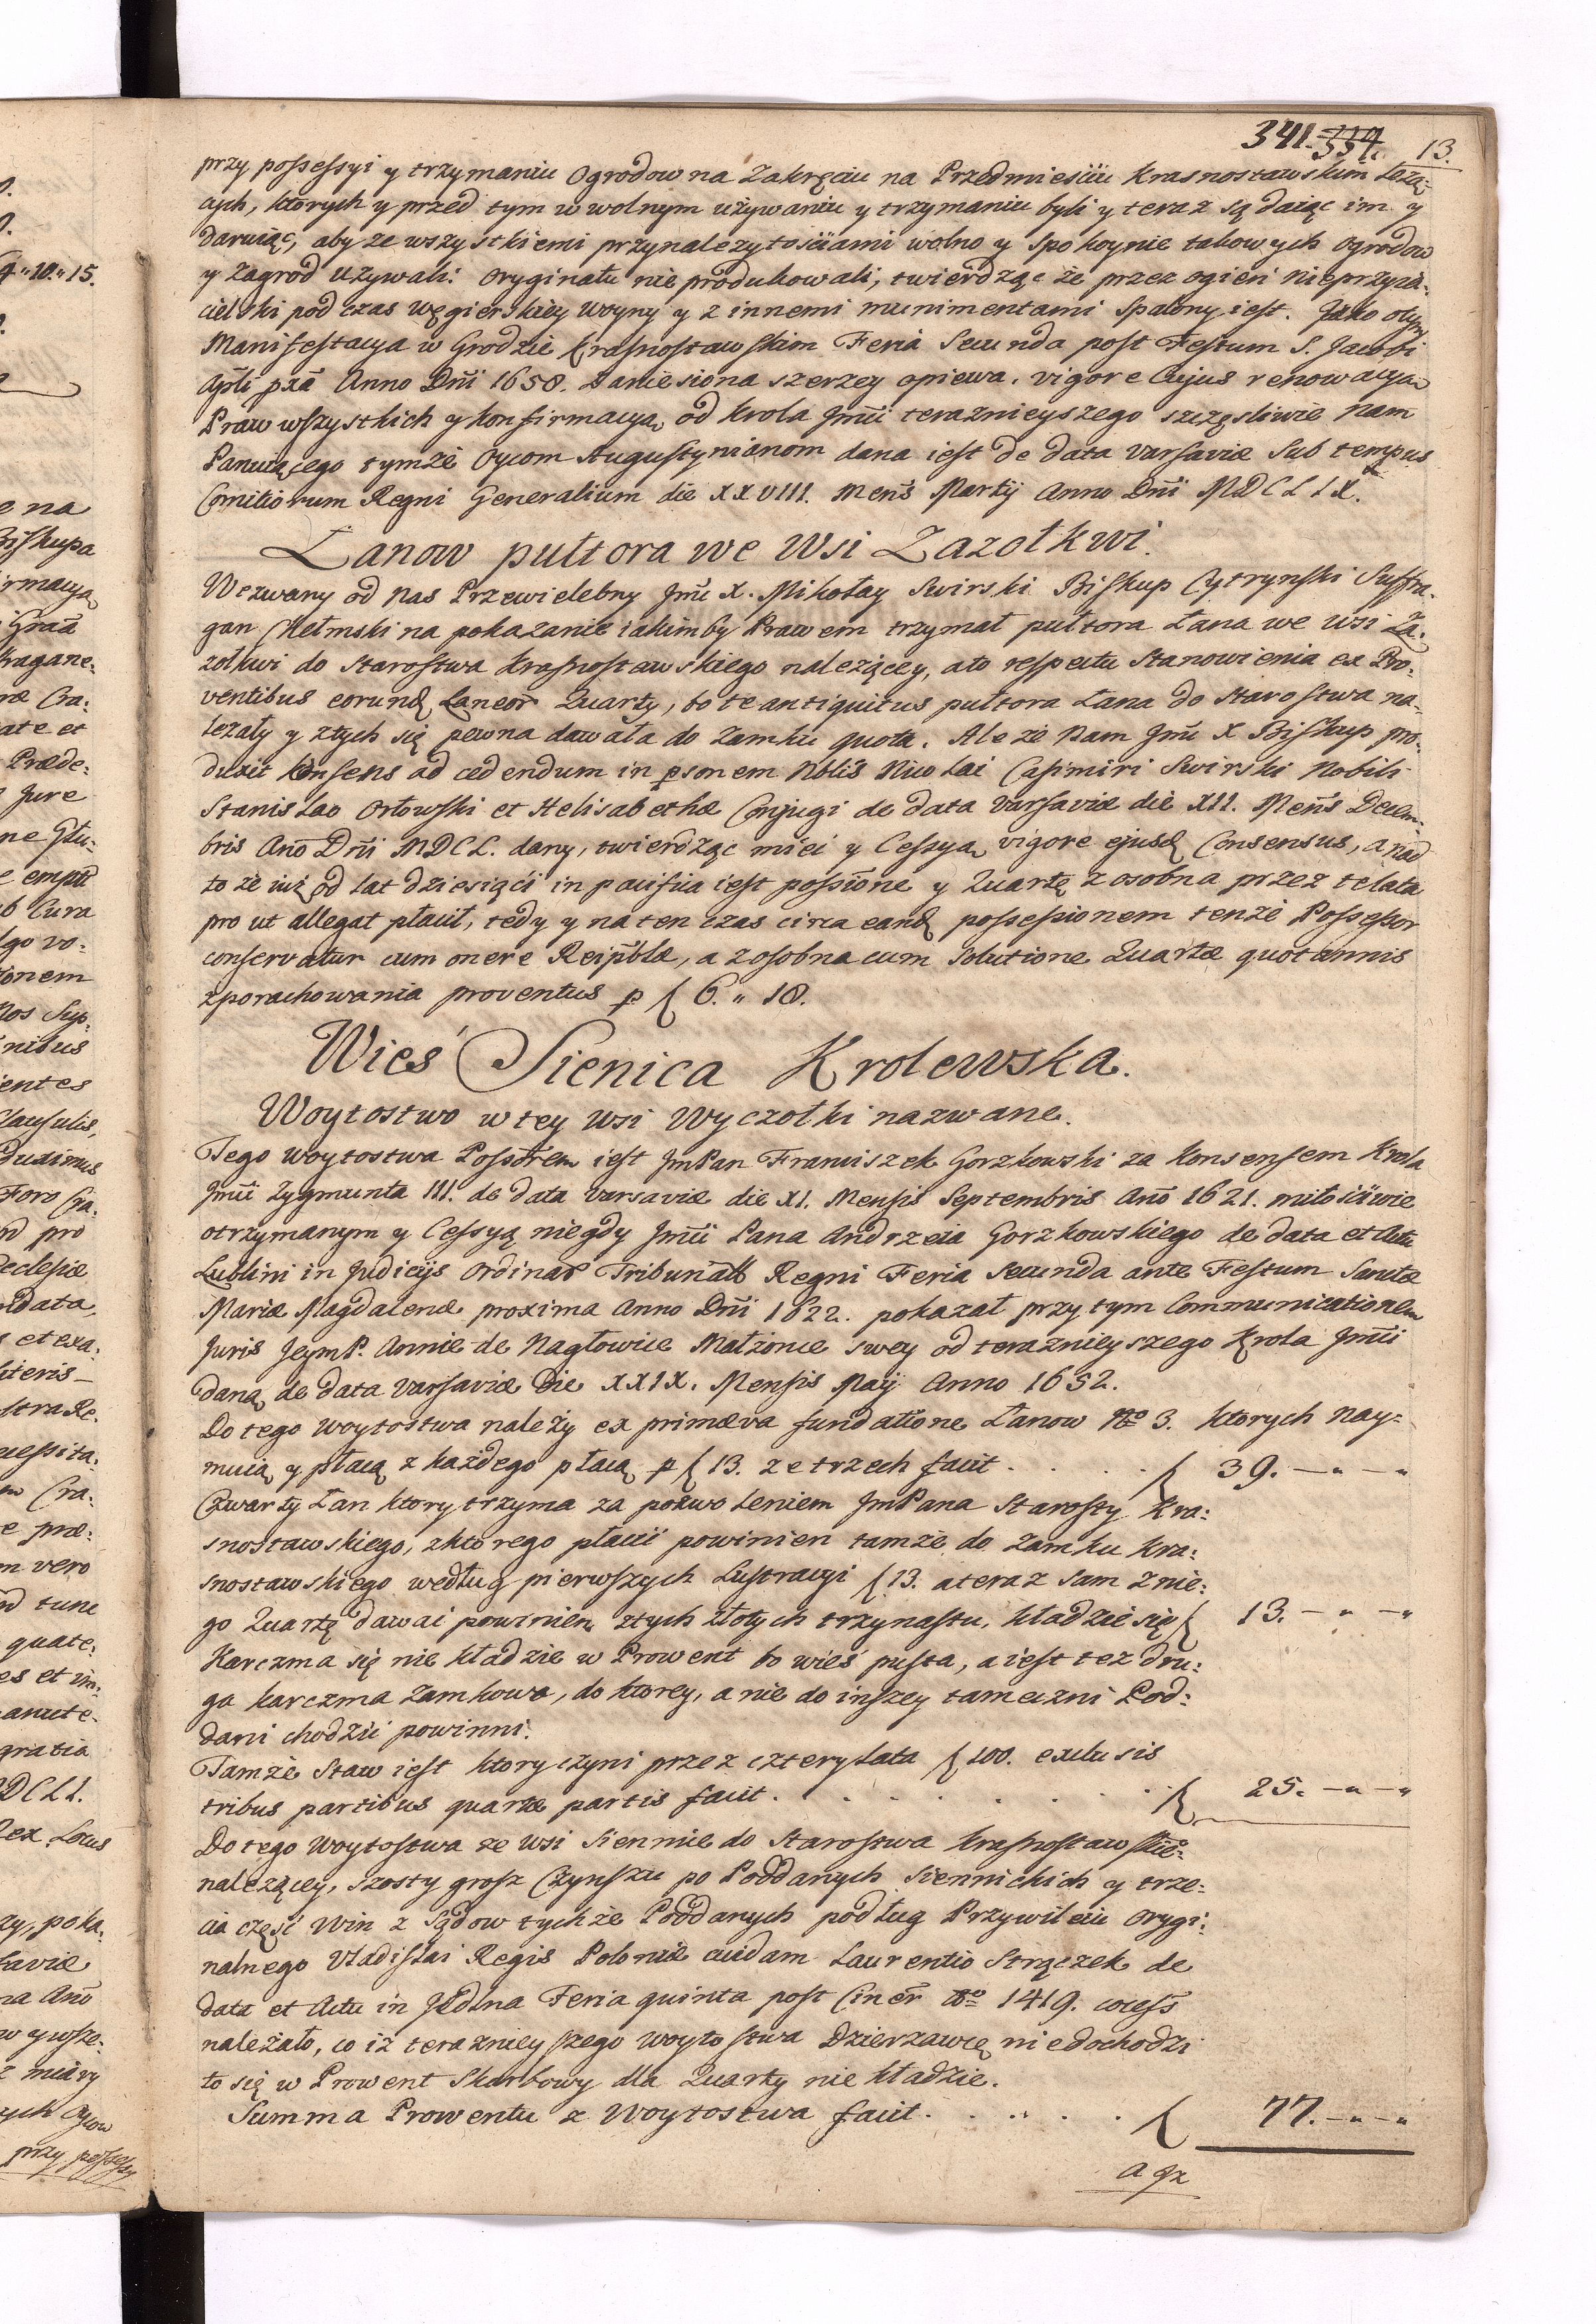 341. 334. 13.
przy possessyi y trzymaniu Ogrodow na Zakręciu na Przedmiesciu Krasnostawskim Leżą-
cych, ktorych y przed tym w wolnym używaniu y trzymaniu byli y teraz są daiąc im y
daruiąc, aby ze wszystkiemi przynależytosciami wolno y spokoynie takowych ogrodow
y zagrod używali. Oryginału nie produkowali, twierdząc że przez ogień nieprzyia-
cielski pod czas węgierskiey woyny y z innemi munimentami spalony iest. Jako o tym
Manifestacya w Grodzie Krasnostawskim Feria Secunda post Festum S. Jacobi
Apłi pxã Anno Dñi 1658. zaniesiona szerzey opiewa. vigore Cujus renowacya
Praw wszystkich y konfirmacya od Krola Jmći teraznieyszego szczęsliwie Nam
Panuiącego tymże Oycom Augustynianom dana iest de data Varsaviæ Sub tempus
Comitiorum Regni Generalium die XXVIII. Meñs Martij Anno Dñi MDCLIX.
Łanow pułtora we Wsi Zazołkwi.
Wezwany od Nas Przewielebny Jmć X. Mikołay Swirski Biskup Cytrynski Suffra-
gan Chełmski na pokazanie iakimby Prawem trzymał pułtora Łana we wsi Za-
zołkwi do Starostwa Krasnostawskiego należącey, a to respectu Stanowienia ex Pro-
ventibus eorund Laneor Quarty, bo te antiquitus pułtora Łana do Starostwa na-
leżały y z tych się pewna dawała do Zamku quota. Ale że Nam Jmć X Biskup pro-
duxit Konsens ad cedendum in psonem Nblis Nicolai Casimiri Swirski Nobili
Stanislao Orłowski et Helisabethæ Conjugi de data Varsaviæ die XII. Meñs Decem-
bris Año Dñi MDCL. dany, twierdząc mieć y Cessyą vigore ejusd Consensus, a nad
to że iuż od lat dziesiąći in pacifica iest possiõne y Quartę z osobna przez te lata
pro ut allegat płacił, tedy y na ten czas circa eand possessionem tenże Possessor
conservatur cum onere Reipblæ, a z osobna cum Solutione Quartæ quotannis
z porachowania proventus p f 6. " 18.
Wieś Sienica Krolewska.
Woytostwo w tey wsi Wyczołki nazwane.
Tego woytostwa Possorem iest JmPan Franciszek Gorzkowski za Konsensem Krola
Jmći Zygmunta III. de data Varsaviæ die XI. Mensis Septembris Año 1621. miłosciwie
otrzymanym y Cessyą niegdy Jmći Pana Andrzeia Gorzkowskiego de data et Actu
Lublini in Judicijs Ordinar Tribunall Regni Feria Secunda ante Festum Sanctæ
Mariæ Magdalenæ proxima Anno Dñi 1622. pokazał przy tym Communicationem
Juris JeymP. Annie de Nagłowice Małżonce swey od teraznieyszego Krola Jmći
daną de data Varsaviæ Die XXIX. Mensis Maij Anno 1652.
Do tego Woytostwa należy ex primæva fundatione Łanow No 3. ktorych nay-
muią y płacą z każdego płacą p f 13. ze trzech facit . . . . f 39. — " — "
Czwarty Łan ktory trzyma za pozwoleniem JmPana Starosty Kra-
snostawskiego, z ktorego płacić powinien tamże do Zamku Kra-
snostawskiego według pierwszych Lustracyi f 13. a teraz sam z nie-
go Quartę dawać powinien z tych złotych trzynastu, kładzie się f 13. — " — "
Karczma się nie kładzie w Prowent bo wieś pusta, a iest też dru-
ga karczma Zamkowa, do ktorey, a nie do inszey tameczni Pod-
dani chodzić powinni.
Tamże Staw iest ktory czyni przez cztery lata f 100. exclusis
tribus partibus quartæ partis facit . . . . . . . f 25. — " — "
Do tego Woytostwa ze wsi Siennice do Starostwa Krasnostawskie-
należącey, szosty grosz Czynszu po Poddanych Siennickich y trze-
cia częsć Win z Sądow tychże Poddanych podług Przywileiu orygi-
nalnego Vladislai Regis Poloniæ cuidam Laurentio Strączek de
data et Actu in Jedlna Feria quinta post Ciner Ao 1419. concess
należało, co iż teraznieyszego Woytostwa Dzierzawcę nie dochodzi
to się w Prowent Skarbowy dla Quarty nie kładzie.
Summa Prowentu z Woytostwa facit . . . . . f 77. — " — "